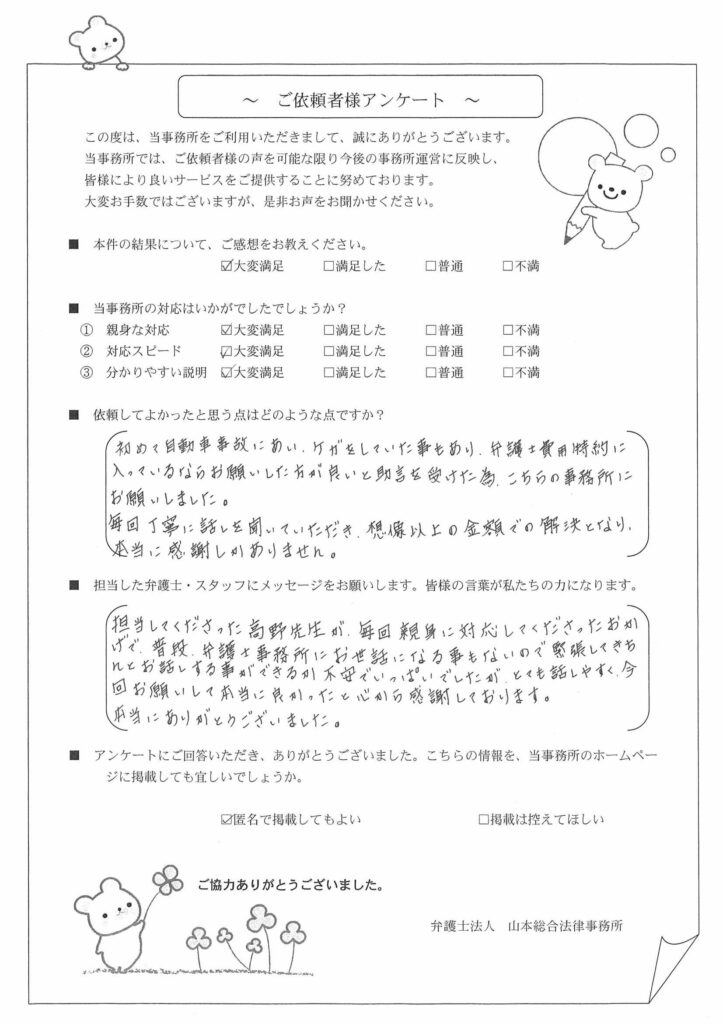 ～　ご依頼者様アンケート　～
この度は、当事務所をご利用いただきまして、誠にありがとうございます。
当事務所では、ご依頼者様の声を可能な限り今後の事務所運営に反映し、
皆様により良いサービスをご提供することに努めております。
大変お手数ではございますが、是非お声をお聞かせください。
■　本件の結果について、ご感想をお教えください。
☑大変満足　□満足した　□普通　□不満
■　当事務所の対応はいかがでしたでしょうか？
①　親身な対応　☑大変満足　□満足した　□普通　□不満
②　対応スピード　☑大変満足　□満足した　□普通　□不満
③　分かりやすい説明　☑大変満足　□満足した　□普通　□不満
■　依頼してよかったと思う点はどのような点ですか？
初めて自動車事故にあい、ケガをしていた事もあり、弁護士費用特約に
入っているならお願いした方が良いと助言を受けた為、こちらの事務所に
お願いしました。
毎回丁寧に話しを聞いていただき、想像以上の金額での解決となり、
本当に感謝しかありません。
■　担当した弁護士・スタッフにメッセージをお願いします。皆様の言葉が私たちの力になります。
担当してくださった高野先生が、毎回親身に対応してくださったおか
げで、普段、弁護士事務所にお世話になる事もないので緊張してきち
んとお話しする事ができるか不安でいっぱいでしたが、とても話しやすく、今
回お願いして本当に良かったと心から感謝しております。
本当にありがとうございました。
■　アンケートにご回答いただき、ありがとうございました。こちらの情報を、当事務所のホームペー
ジに掲載しても宜しいでしょうか。
☑匿名で掲載してもよい　□掲載は控えてほしい
ご協力ありがとうございました。
弁護士法人　山本総合法律事務所